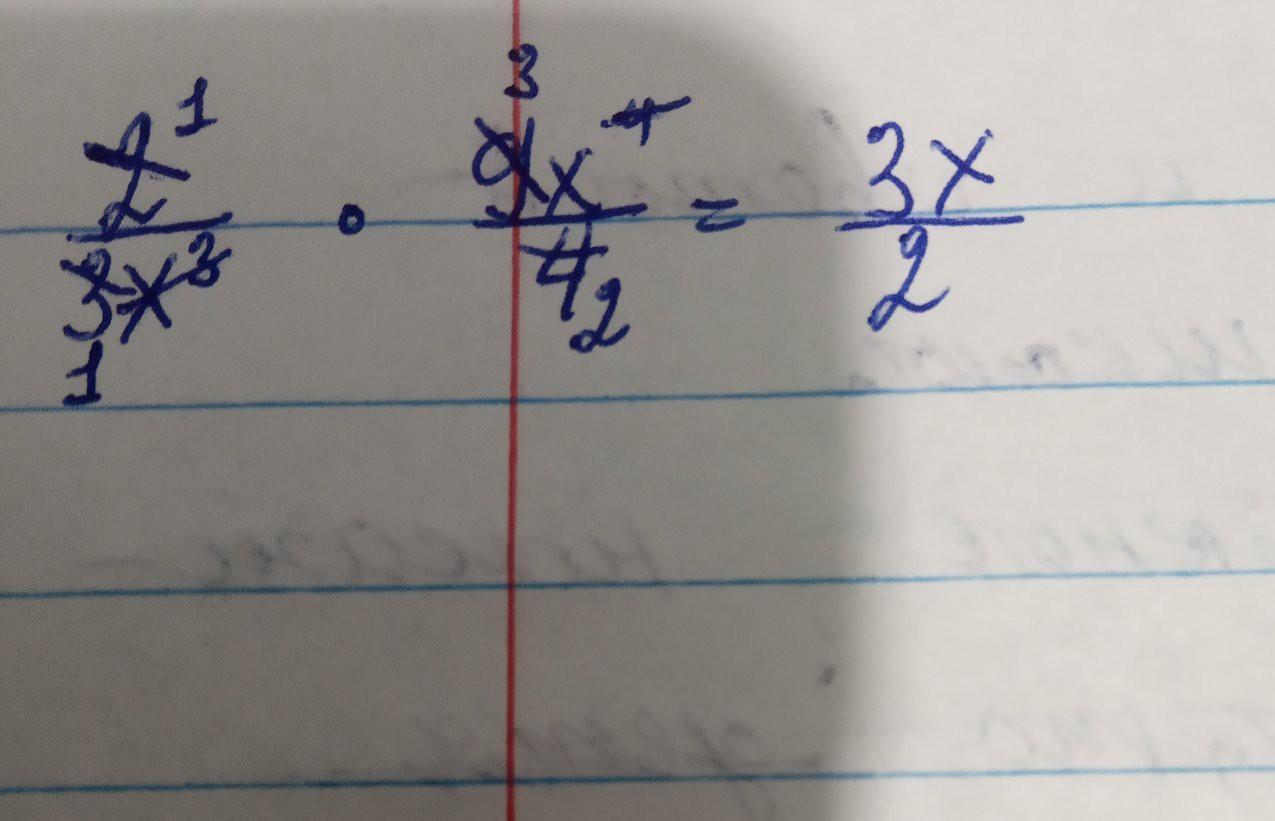 2¹/3x³ · 9x⁴/4 = 3x/2
3
1 2